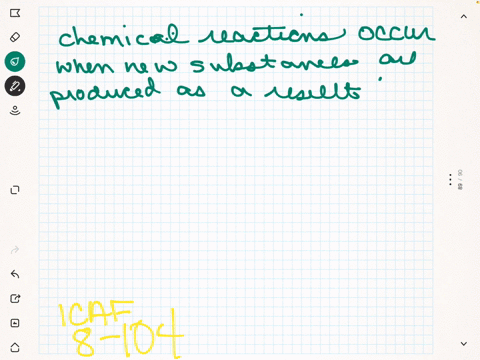 chemical reactions occur
when new substances are
produced as a result
ICAF
8-104